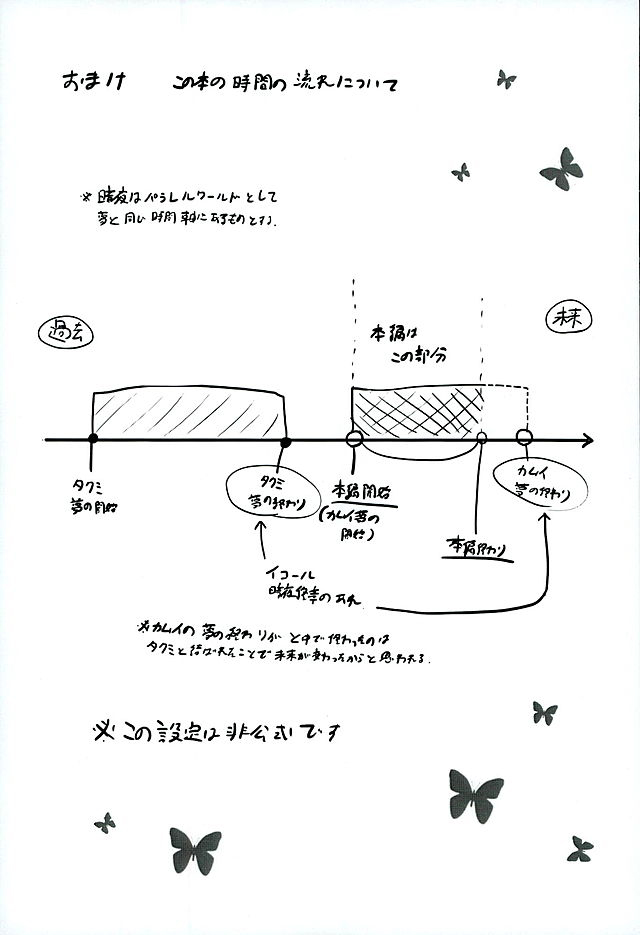 おまけ この本の時間の流れについて
※暗夜はパラレルワールドとして
夢と同じ時間軸にあるものとする.
過去
未来
本編は
この部分
タクミ
夢の開始
タクミ
夢の終わり
本編開始
(カムイ夢の
開始)
本編終わり
カムイ
夢の終わり
イコール
暗夜終章のあれ
※カムイの夢の終わりが とちゅうで終わったのは
タクミと結ばれたことで未来が変わったからと思われる.
※この設定は非公式です